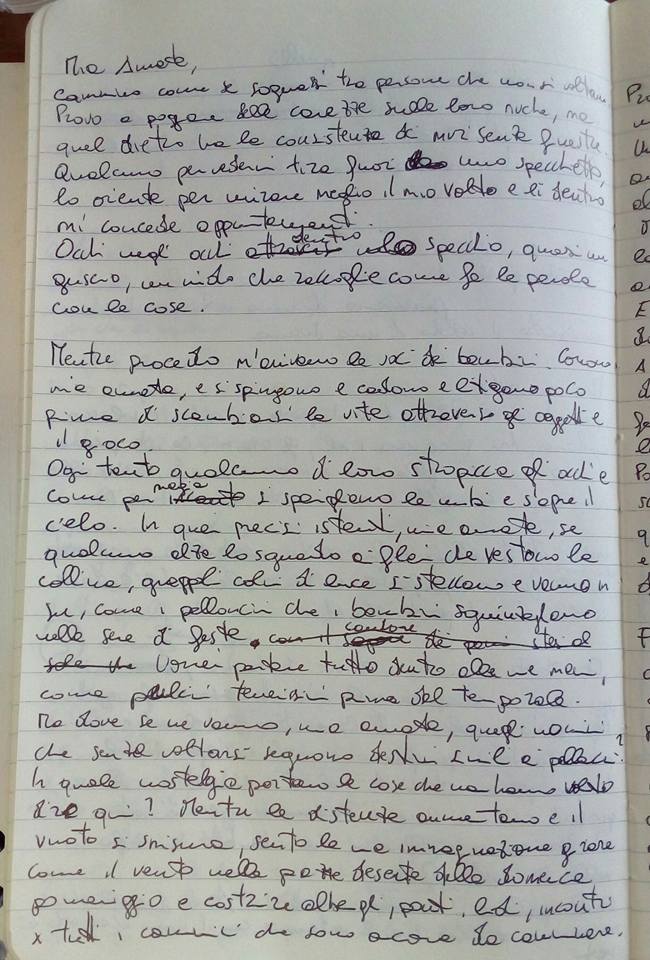 Mia Amata,
cammino come se sognassi tra persone che non si voltano
Provo a poggiare delle carezze sulle loro nuche, ma
quel dietro ha la consistenza di muri senza finestre.
Qualcuno per vedermi tira fuori uno specchietto,
lo orienta per mirare meglio il mio volto e lì dentro
mi concede appuntamenti.
Occhi negli occhi dentro specchio, quasi un
guscio, un nido che raccoglie come fa la parola
con le cose.
Mentre procedo m'arrivano le voci dei bambini. Corrono
mia amata, e si spingono e cadono e litigano poco
prima di scambiarsi la vita attraverso gli oggetti e
il gioco.
Ogni tanto qualcuno di loro stropiccia gli occhi e
come per magia si spengono le nubi e s'apre il
cielo. In quei precisi istanti, mia amata, se
qualcuno alza lo sguardo ai filari che vestono la
collina, grappoli colmi di luce si staccano e vanno in
su, come i palloncini che i bambini sguinzagliano
nelle sere di festa.
Vorrei portare tutto dentro alle mie mani,
come pulcini tenerissimi prima del temporale.
Ma dove se ne vanno, mia amata, quegli uomini
che senza voltarsi seguono destini simili a pallacci?
In quale nostalgia portano le cose che non hanno voluto
dire qui? Mentre le distanze aumentano e il
vuoto si smisura, sento la mia immaginazione girare
come il vento nella parte deserta della domenica
pomeriggio e costruire alberghi, ponti, lidi, incontri
x tutti i cammini che sono ancora da camminare.